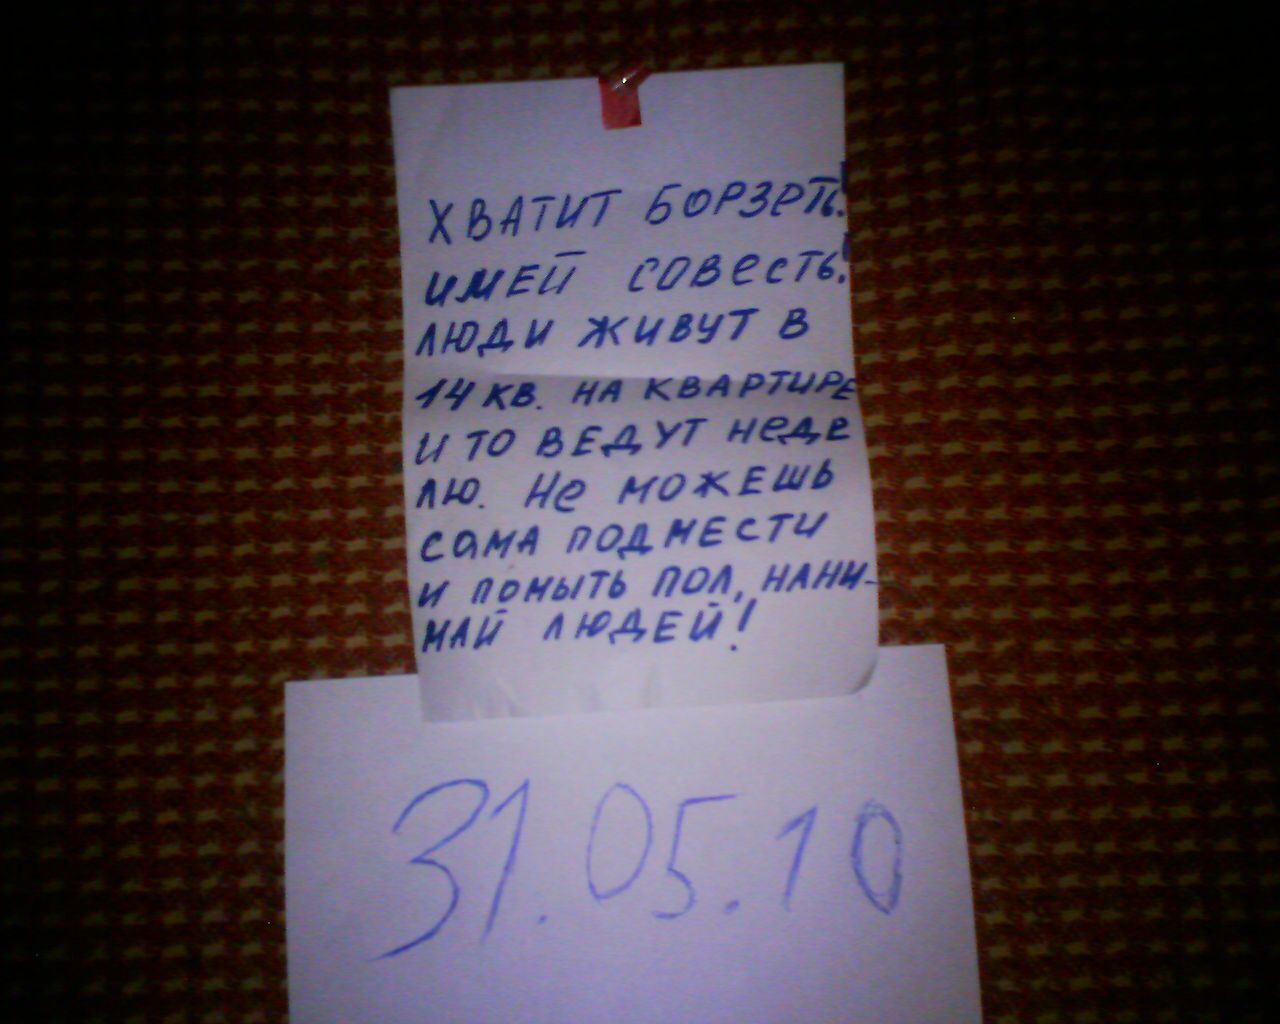 ХВАТИТ БОРЗЕТЬ!
ИМЕЙ СОВЕСТЬ!
ЛЮДИ ЖИВУТ В
14 КВ. НА КВАРТИРЕ
И ТО ВЕДУТ НЕДЕ
ЛЮ. НЕ МОЖЕШЬ
САМА ПОДМЕСТИ
И ПОМЫТЬ ПОЛ, НАНИ-
МАЙ ЛЮДЕЙ!
31.05.10